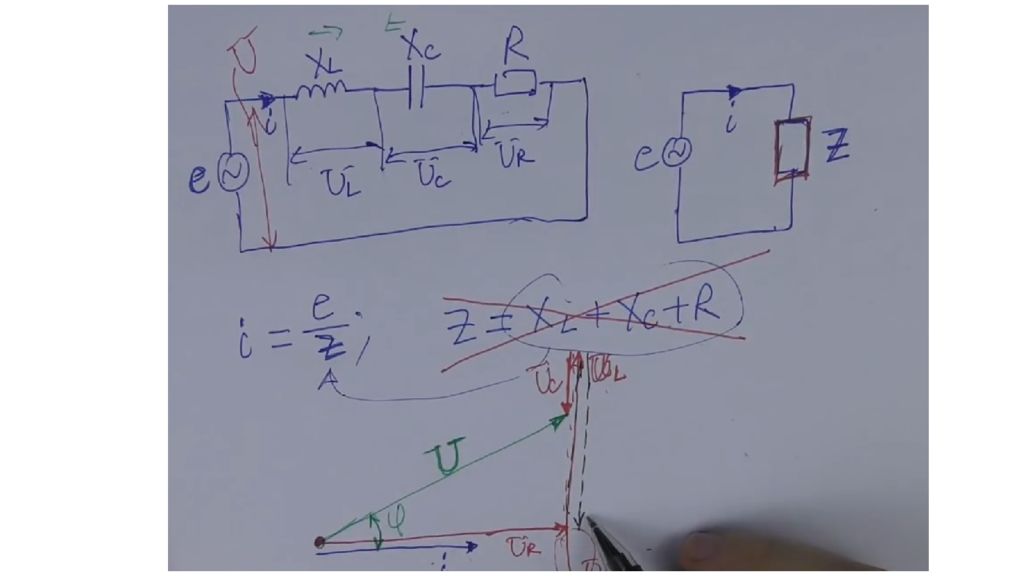 U XL XC R
i
e UL UC UR
e i Z
i = e/Z; Z = XL + XC + R
UC UL
U
φ
UR
i